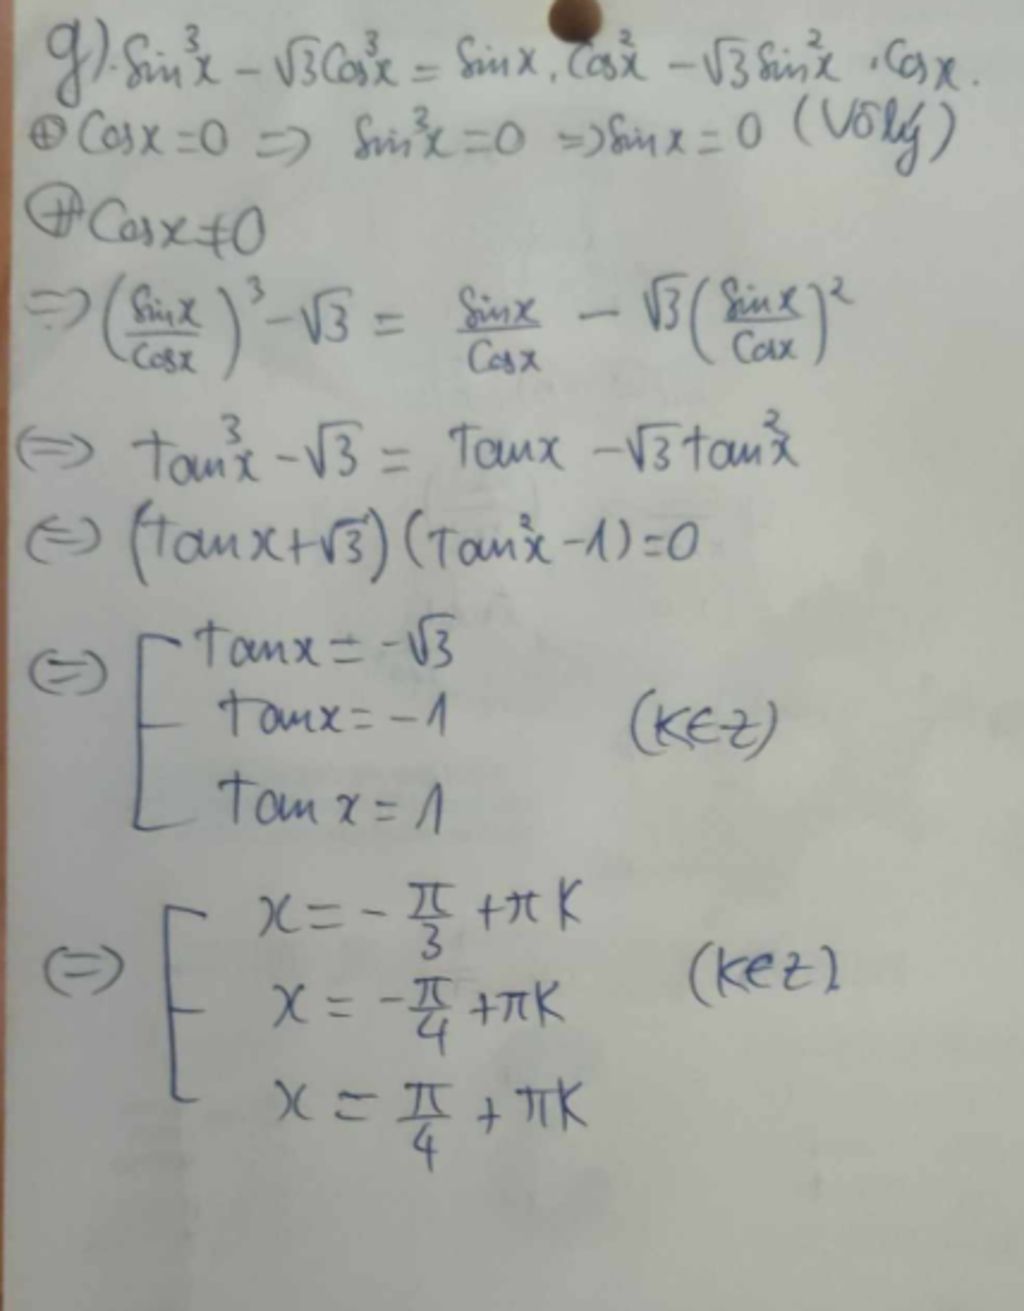 g). Sin³x - √3Cos³x = Sinx. Cos²x - √3Sin²x .Cosx.
⊕ Cosx=0 => Sin³x=0 =>Sinx=0 (Vô lý)
⊕ Cosx≠0
=> (Sinx/Cosx)³ - √3 = Sinx/Cosx - √3(Sinx/Cosx)²
<=> tan³x - √3 = tanx - √3tan²x
<=> (tanx+√3)(tan²x-1)=0
<=> [ tanx = -√3
tanx = -1 (K∈Z)
tanx = 1
<=> [ x = -π/3 + πK
x = -π/4 + πK (K∈Z)
x = π/4 + πK